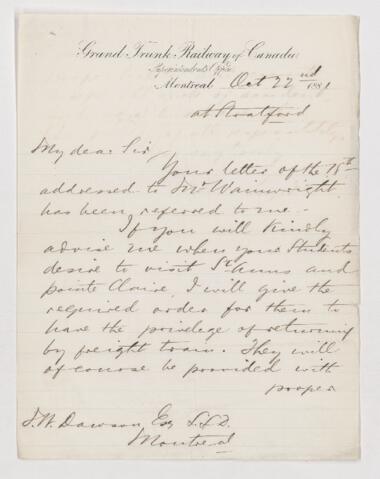 Grand Trunk Railway of Canada
Superintendent's Office
Montreal Oct 22nd 1881
at Stratford
My dear Sir
Your letter of the 18th
addressed to Mr Wainwright
has been referred to me -
If you will Kindly
advise me when your Students
desire to visit St Anns and
pointe Claire, I will give the
required order for them to
have the privelege of returning
by freight train. They will
of course be provided with
proper
J. W. Dawson Esq L.L.D.
Montreal